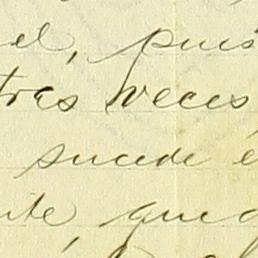 el, pues
tres veces
sucede e
nte, que